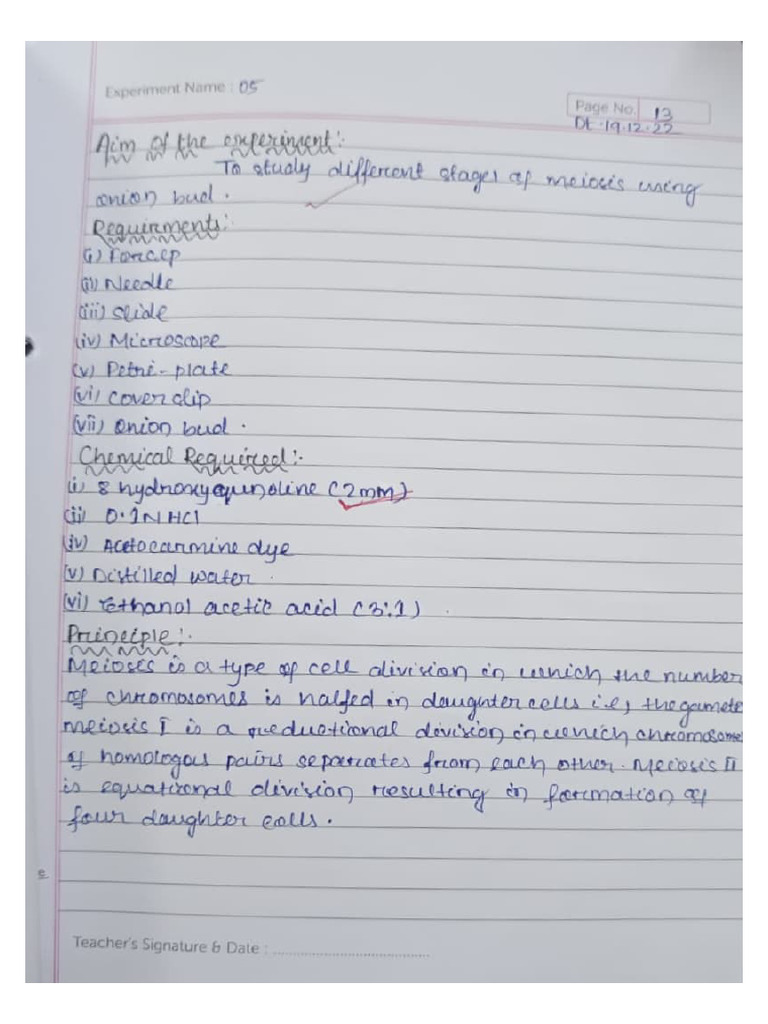 Experiment Name : 05
Page No. 13
Dt. 19.12.22
Aim of the experiment:-
To study different stages of meiosis using
onion bud.
Requirments:-
(i) Forcep
(ii) Needle
(iii) slide
(iv) Microscope
(v) Petri-plate
(vi) cover slip
(vii) onion bud.
Chemical Required:-
(i) 8 hydroxyquinoline (2mm)
(ii) 0.1N HCl
(iv) Acetocarmine dye
(v) Distilled water.
(vi) Ethanol acetic acid (3:1).
Principle:-
Meioses is a type of cell division in which the number
of chromosomes is halfed in daughter cells i.e, the gamete
meiosis I is a reductional division in which chromosome
of homologous pairs separates from each other. Meiosis II
is equational division resulting in formation of
four daughter cells.
Teacher's Signature & Date : ........................................